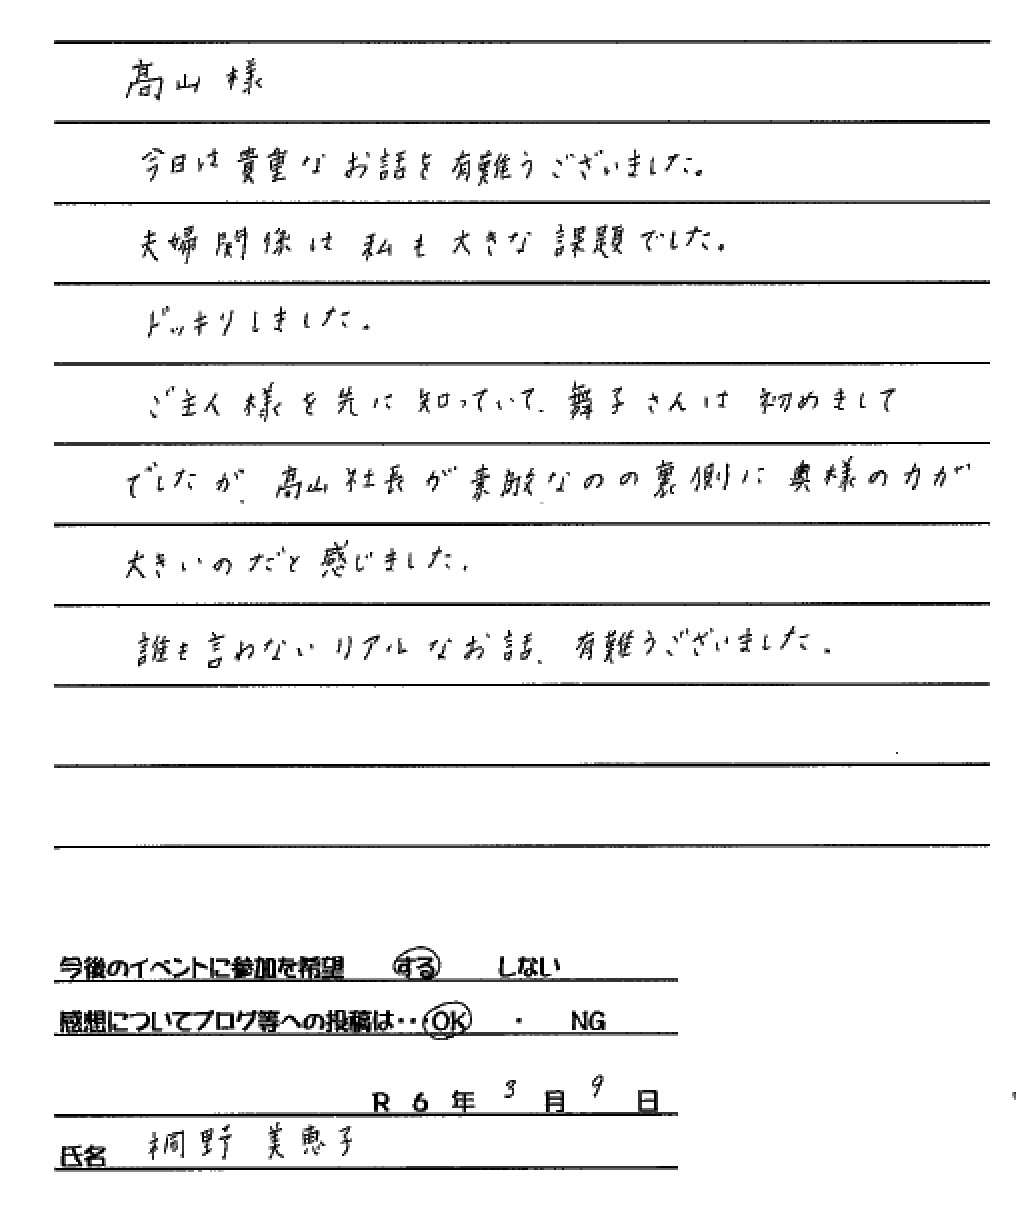 高山 様
今日は貴重なお話を有難うございました。
夫婦関係は私も大きな課題でした。
ドッキリしました。
ご主人様を先に知っていて、舞子さんは初めまして
でしたが、高山社長が素敵なのの裏側に奥様の力が
大きいのだと感じました。
誰も言わないリアルなお話、有難うございました。
今後のイベントに参加を希望 する しない
感想についてブログ等への投稿は・・・OK ・ NG
R 6 年 3 月 9 日
氏名 桐野 美恵子